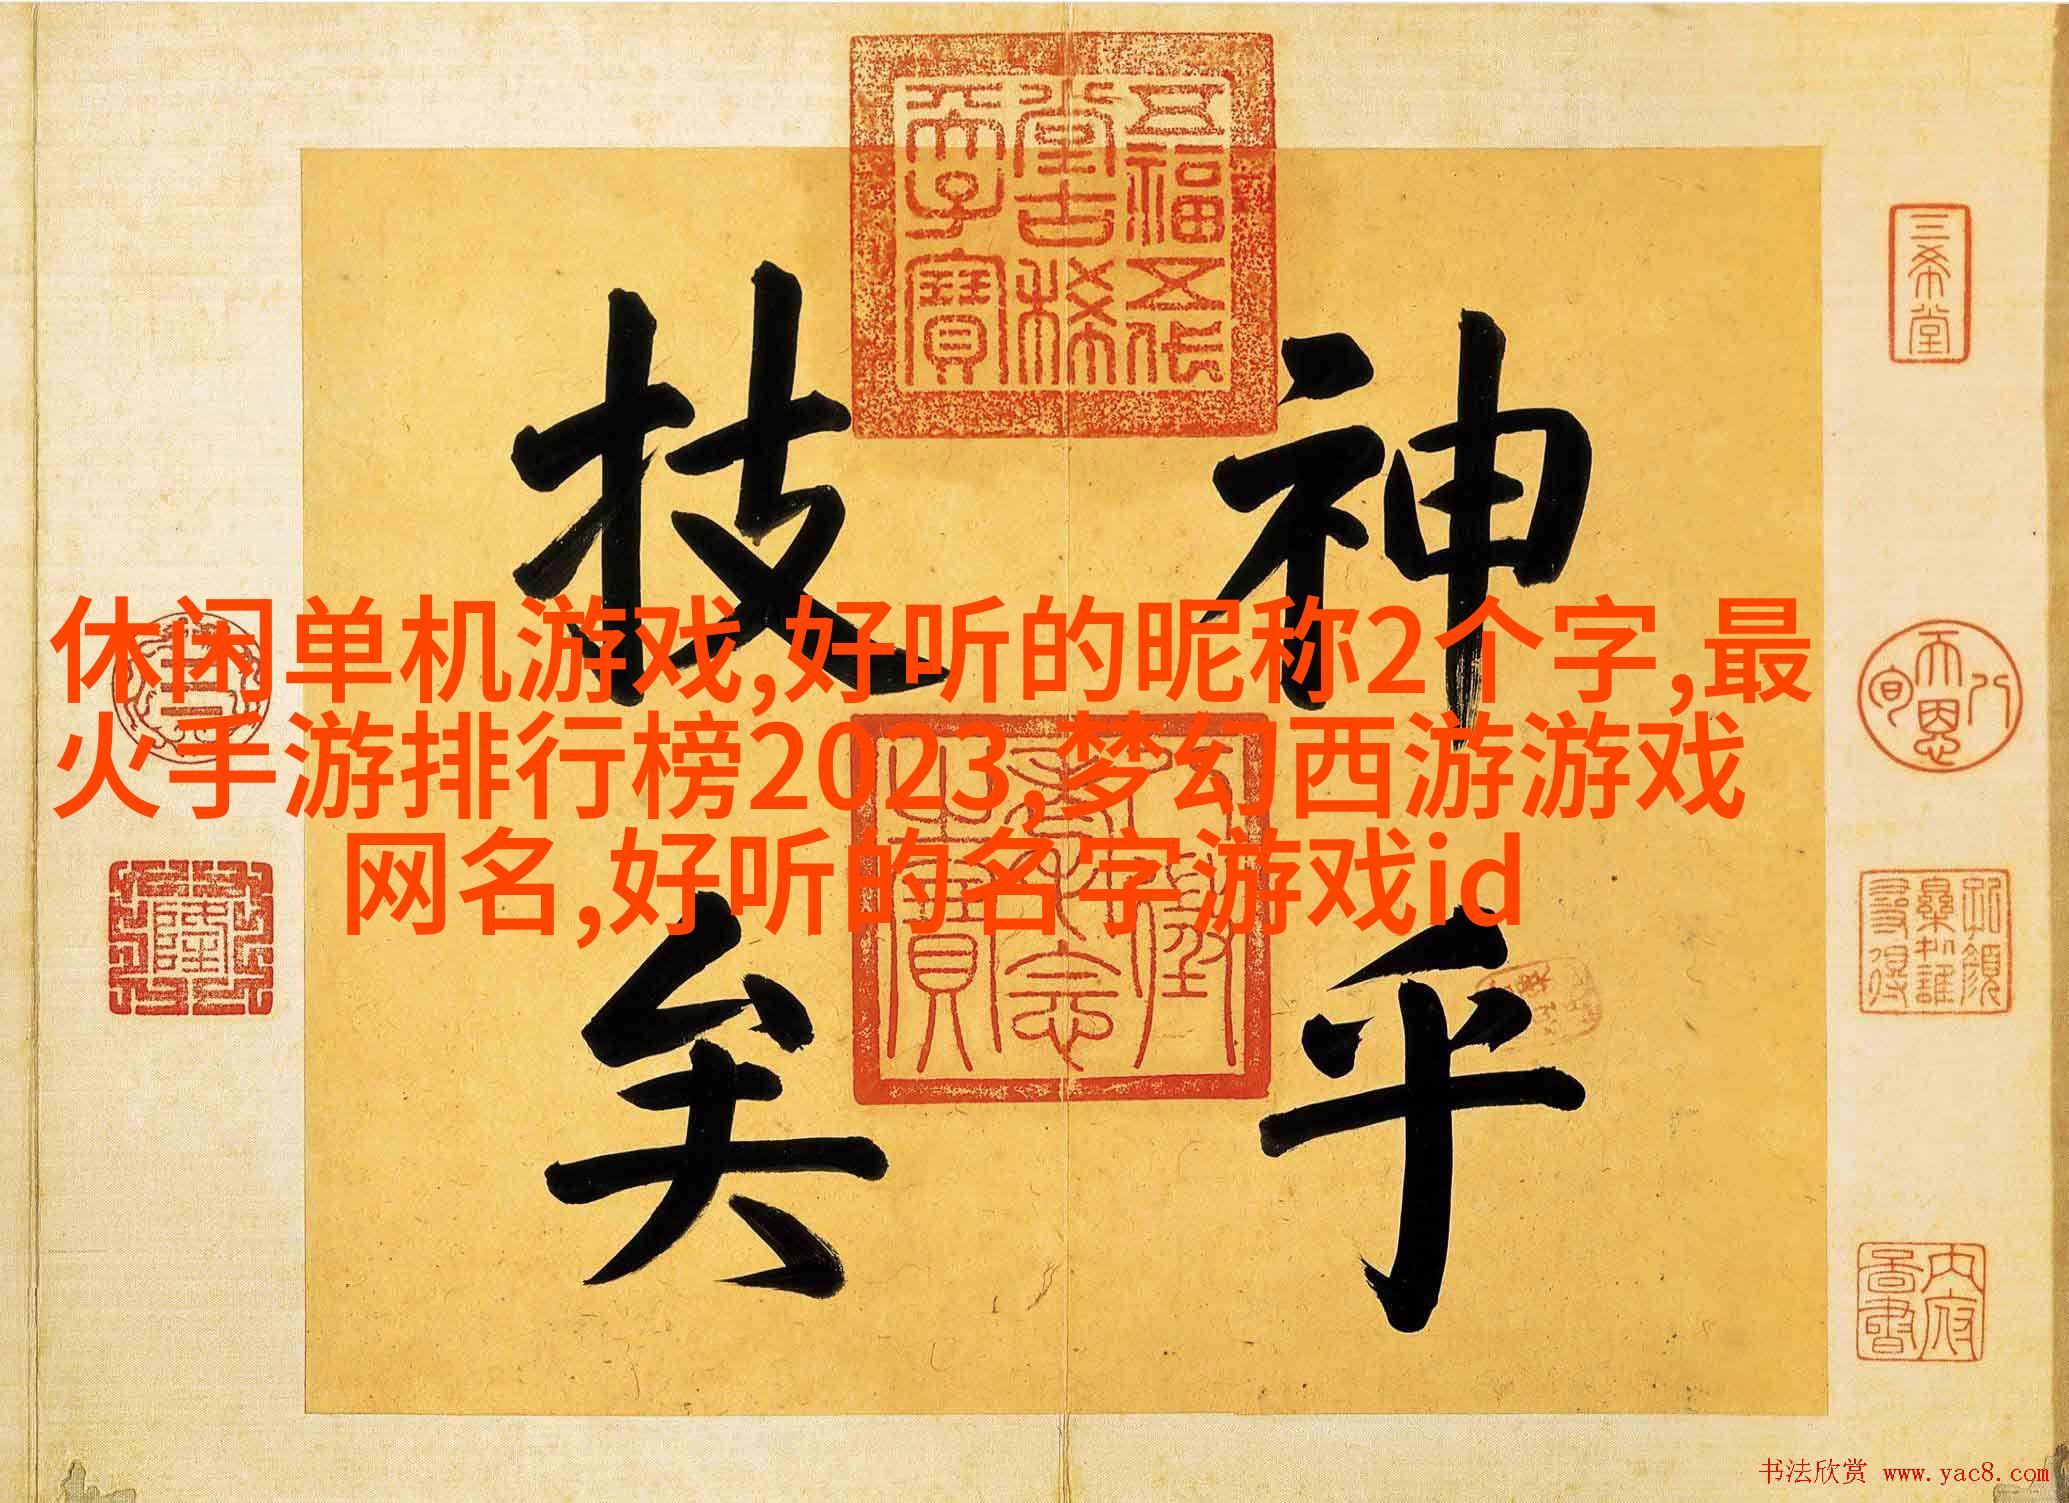 神乎
技矣
休闲单机游戏,好听的昵称2个字,最
火手游排行榜2023,梦幻西游游戏
网名,好听的名字游戏id
五福五代
堂古稀
天子寶
三希堂
八
天恩
旬
內府
書法欣赏 www.yac8.com